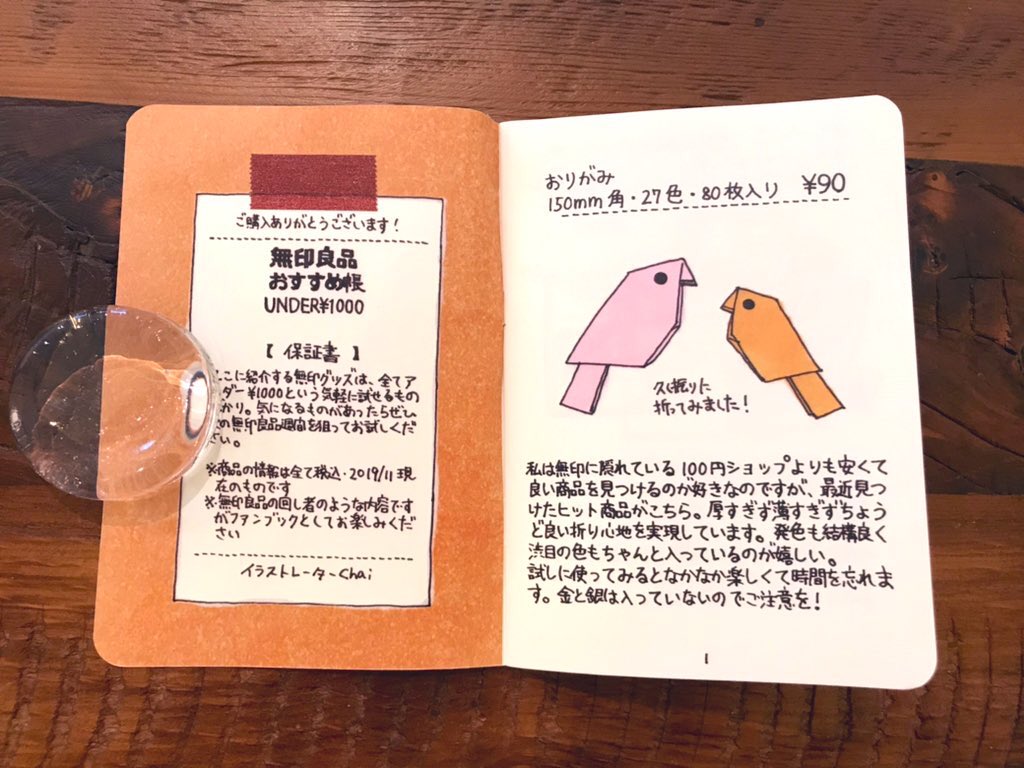 ご購入ありがとうございます!
無印良品
おすすめ帳
UNDER¥1000
【 保証書 】
ここに紹介する無印グッズは、全てア
ダー¥1000という気軽に試せるもの
かり。気になるものがあったらぜひ
の無印良品週間を狙ってお試しくだ
さい。
※商品の情報は全て税込・2019/11現
在のものです
※無印良品の回し者のような内容です
がファンブックとしてお楽しみくだ
さい
イラストレーターChai
おりがみ
150mm角・27色・80枚入り ¥90
久し振りに
折ってみました!
私は無印に隠れている100円ショップよりも安くて
良い商品を見つけるのが好きなのですが、最近見つ
けたヒット商品がこちら。厚すぎず薄すぎずちょう
ど良い折り心地を実現しています。発色も結構良く
渋目の色もちゃんと入っているのが嬉しい。
試しに使ってみるとなかなか楽しくて時間を忘れま
す。金と銀は入っていないのでご注意を!
1